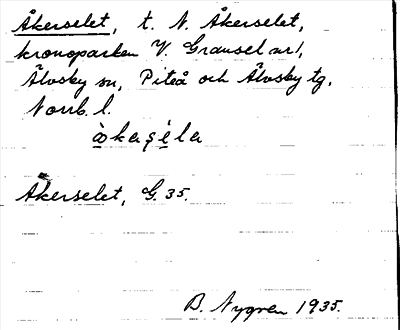 Åkerselet, t. N. Åkerselet,
kronoparken V. Gransel nr 1,
Älvsby sn, Piteå och Älvsby tg,
Norrb. l.
Åkerselet, G. 35.
B. Nygren 1935.